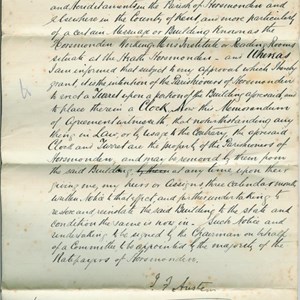 and Hereditaments in the Parish of Horsmonden and
elsewhere in the County of Kent and more particularly
of a certain Messuage or Building known as the
Horsmonden Working Mens Institute or Reading Room
situate at the Heath Horsmonden. and Whereas
I am informed that subject to my approval which I hereby
grant it is the intention of the Parishioners of Horsmonden
to erect a Turret upon a portion of the Building aforesaid and
to place therein a Clock Now this Memorandum
of Agreement witnesseth that notwithstanding any
thing in Law or by usage to the Contrary, the aforesaid
Clock and Turret are the property of the Parishioners of
Horsmonden, and may be removed by them from
the said Building at any time upon their
giving me, my heirs or assigns three calendar months
written notice to that effect, and further undertaking to
restore and reinstate the said Building to the state and
condition the same is now in. Such Notice and
undertaking to be signed by the Chairman on behalf
of a Committee to be appointed by the majority of the
Ratepayers of Horsmonden.
J. F. Austen